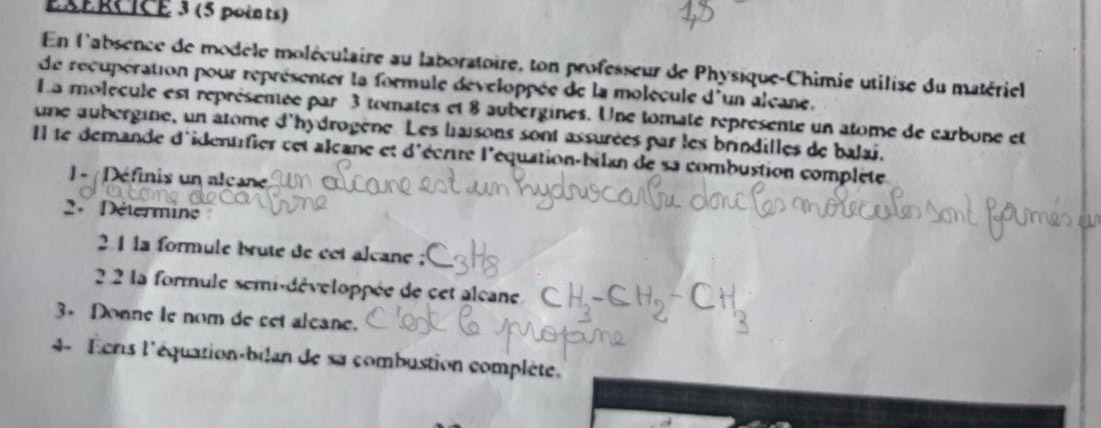 EXERCICE 3 (5 points)
1,5
En l'absence de modèle moléculaire au laboratoire, ton professeur de Physique-Chimie utilise du matériel
de récupération pour représenter la formule développée de la molécule d'un alcane.
La molécule est représentée par 3 tomates et 8 aubergines. Une tomate représente un atome de carbone et
une aubergine, un atome d'hydrogène. Les liaisons sont assurées par les brindilles de balai.
Il te demande d'identifier cet alcane et d'écrire l'équation-bilan de sa combustion complète.
1- Définis un alcane un alcane est un hydrocarbu donc les molécules sont formés
d'atome de carbone
2- Détermine :
2.1 la formule brute de cet alcane : C3H8
2.2 la formule semi-développée de cet alcane. CH3-CH2-CH3
3- Donne le nom de cet alcane. C'est le propane
4- Ecris l'équation-bilan de sa combustion complète.